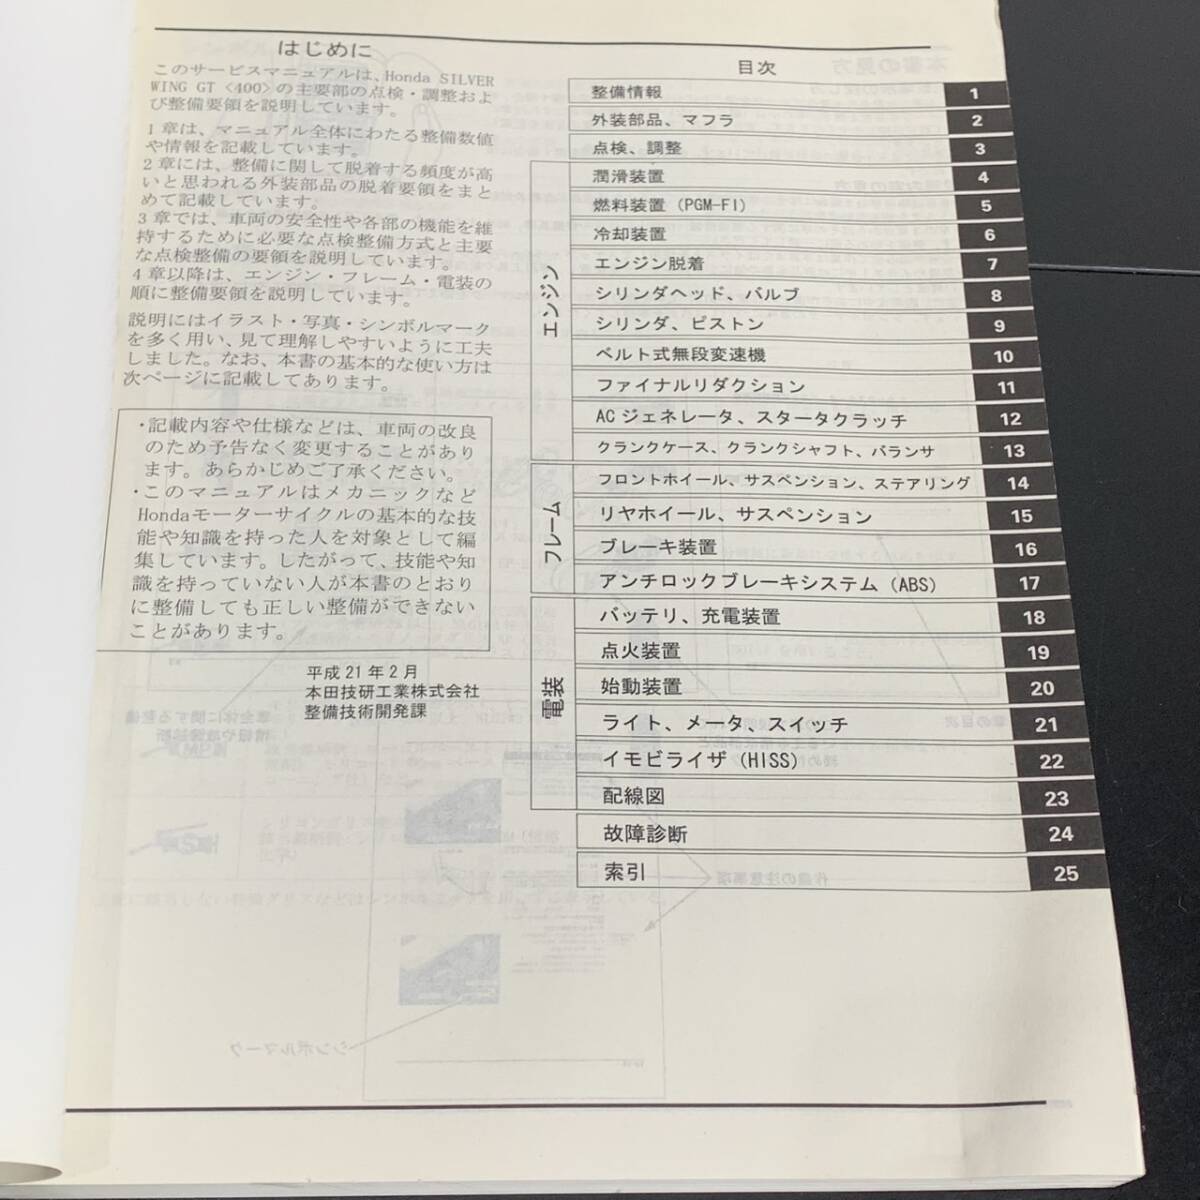 はじめに
このサービスマニュアルは、Honda SILVER
WING GT〈400〉の主要部の点検・調整およ
び整備要領を説明しています。
1章は、マニュアル全体にわたる整備数値
や情報を記載しています。
2章には、整備に関して脱着する頻度が高
いと思われる外装部品の脱着要領をまと
めて記載しています。
3章では、車両の安全性や各部の機能を維
持するために必要な点検整備方式と主要
な点検整備の要領を説明しています。
4章以降は、エンジン・フレーム・電装の
順に整備要領を説明しています。
説明にはイラスト・写真・シンボルマーク
を多く用い、見て理解しやすいように工夫
しました。なお、本書の基本的な使い方は
次ページに記載してあります。
・記載内容や仕様などは、車両の改良
のため予告なく変更することがあり
ます。あらかじめご了承ください。
・このマニュアルはメカニックなど
Hondaモーターサイクルの基本的な技
能や知識を持った人を対象として編
集しています。したがって、技能や知
識を持っていない人が本書のとおり
に整備しても正しい整備ができない
ことがあります。
平成21年2月
本田技研工業株式会社
整備技術開発課
目次
整備情報 1
外装部品、マフラ 2
点検、調整 3
エンジン
潤滑装置 4
燃料装置(PGM-FI) 5
冷却装置 6
エンジン脱着 7
シリンダヘッド、バルブ 8
シリンダ、ピストン 9
ベルト式無段変速機 10
ファイナルリダクション 11
ACジェネレータ、スタータクラッチ 12
クランクケース、クランクシャフト、バランサ 13
フレーム
フロントホイール、サスペンション、ステアリング 14
リヤホイール、サスペンション 15
ブレーキ装置 16
アンチロックブレーキシステム(ABS) 17
電装
バッテリ、充電装置 18
点火装置 19
始動装置 20
ライト、メータ、スイッチ 21
イモビライザ(HISS) 22
配線図 23
故障診断 24
索引 25